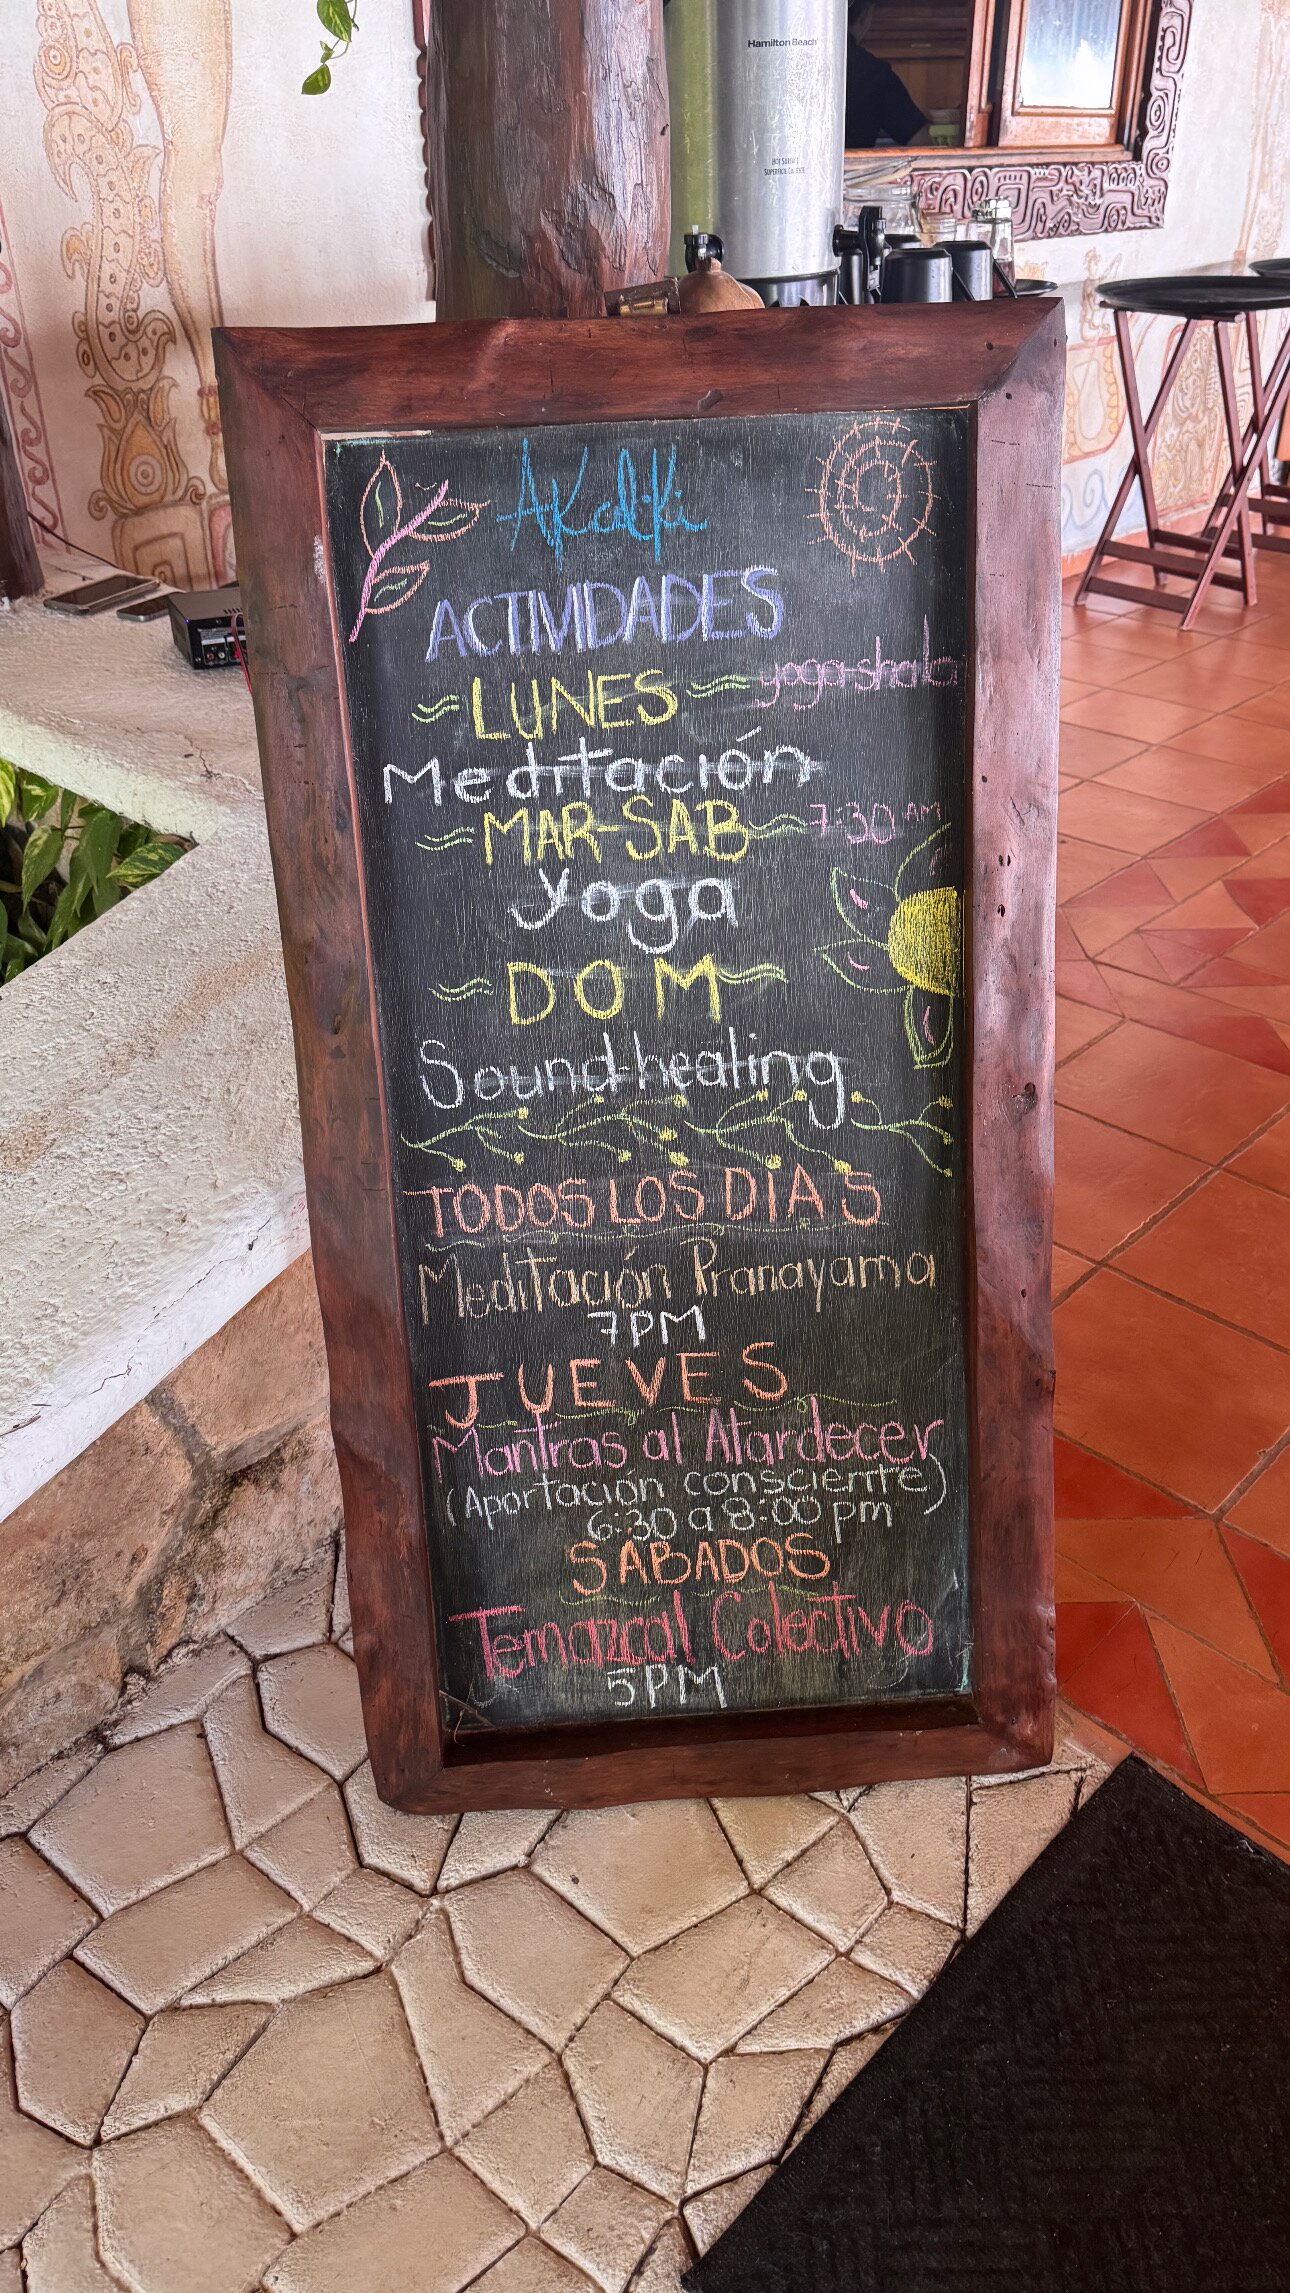 Hamilton Beach
HOT SURFACE
SUPERFICIE CALIENTE
AKalKi
ACTIVIDADES
~LUNES~ yoga-shala
Meditación
~MAR-SAB~ 7:30 AM
yoga
~DOM~
Sound-healing
TODOS LOS DIAS
Meditación Pranayama
7PM
JUEVES
Mantras al Atardecer
(Aportación consciente)
6:30 a 8:00 pm
SABADOS
Temazcal Colectivo
5PM